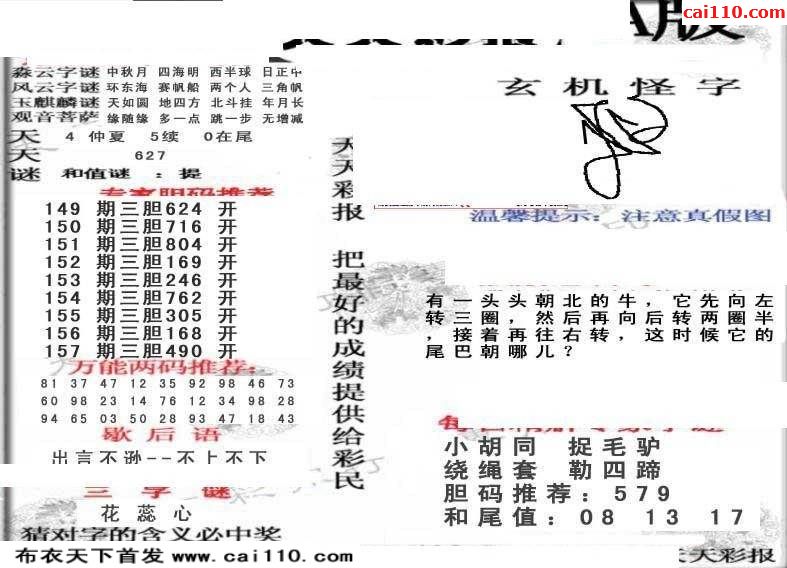 cai110.com
版
淼云字谜 中秋月 四海明 西半球 日正中
风云字谜 环东海 赛帆船 两个人 三角帆
玉麒麟谜 天如圆 地四方 北斗挂 年月长
观音菩萨 缘随缘 多一点 跳一步 无增减
天 4 仲夏 5续 0在尾
天 627
谜 和值谜 : 提
专家胆码推荐
149 期三胆624 开
150 期三胆716 开
151 期三胆804 开
152 期三胆169 开
153 期三胆246 开
154 期三胆762 开
155 期三胆305 开
156 期三胆168 开
157 期三胆490 开
万能两码推荐:
81 37 47 12 35 92 98 46 73
60 98 23 14 76 12 34 98 28
94 65 03 50 28 93 47 18 43
歇后语
出言不逊--不上不下
三字谜
花蕊心
猜对字的含义必中奖
布衣天下首发 www.cai110.com
天天彩报 把最好的成绩提供给彩民
玄机怪字
温馨提示: 注意真假图
有一头头朝北的牛，它先向左
转三圈，然后再向后转两圈半
，接着再往右转，这时候它的
尾巴朝哪儿？
小胡同 捉毛驴
绕绳套 勒四蹄
胆码推荐: 579
和尾值: 08 13 17
天天彩报